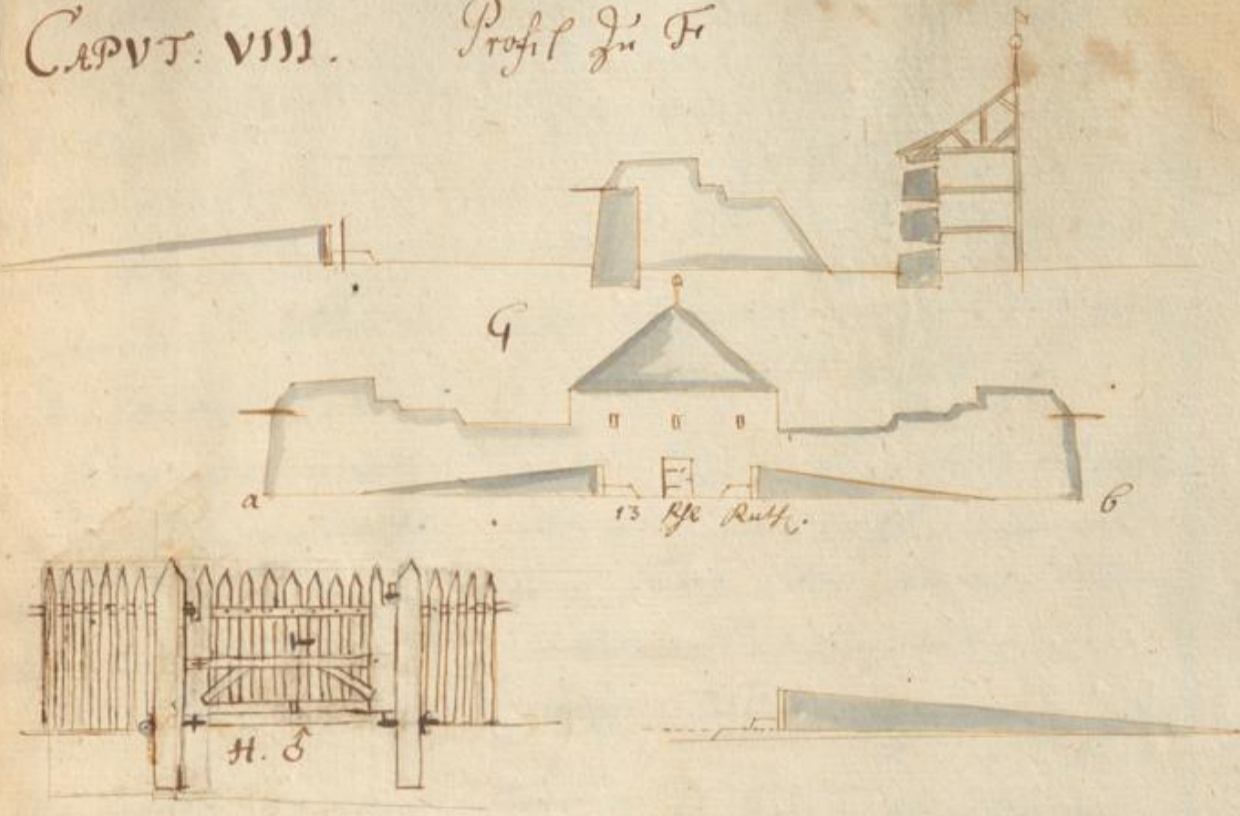 CAPVT: VIII.
Profil Zu F
G
a
b
13 Rhl Ruth.
H. ♂